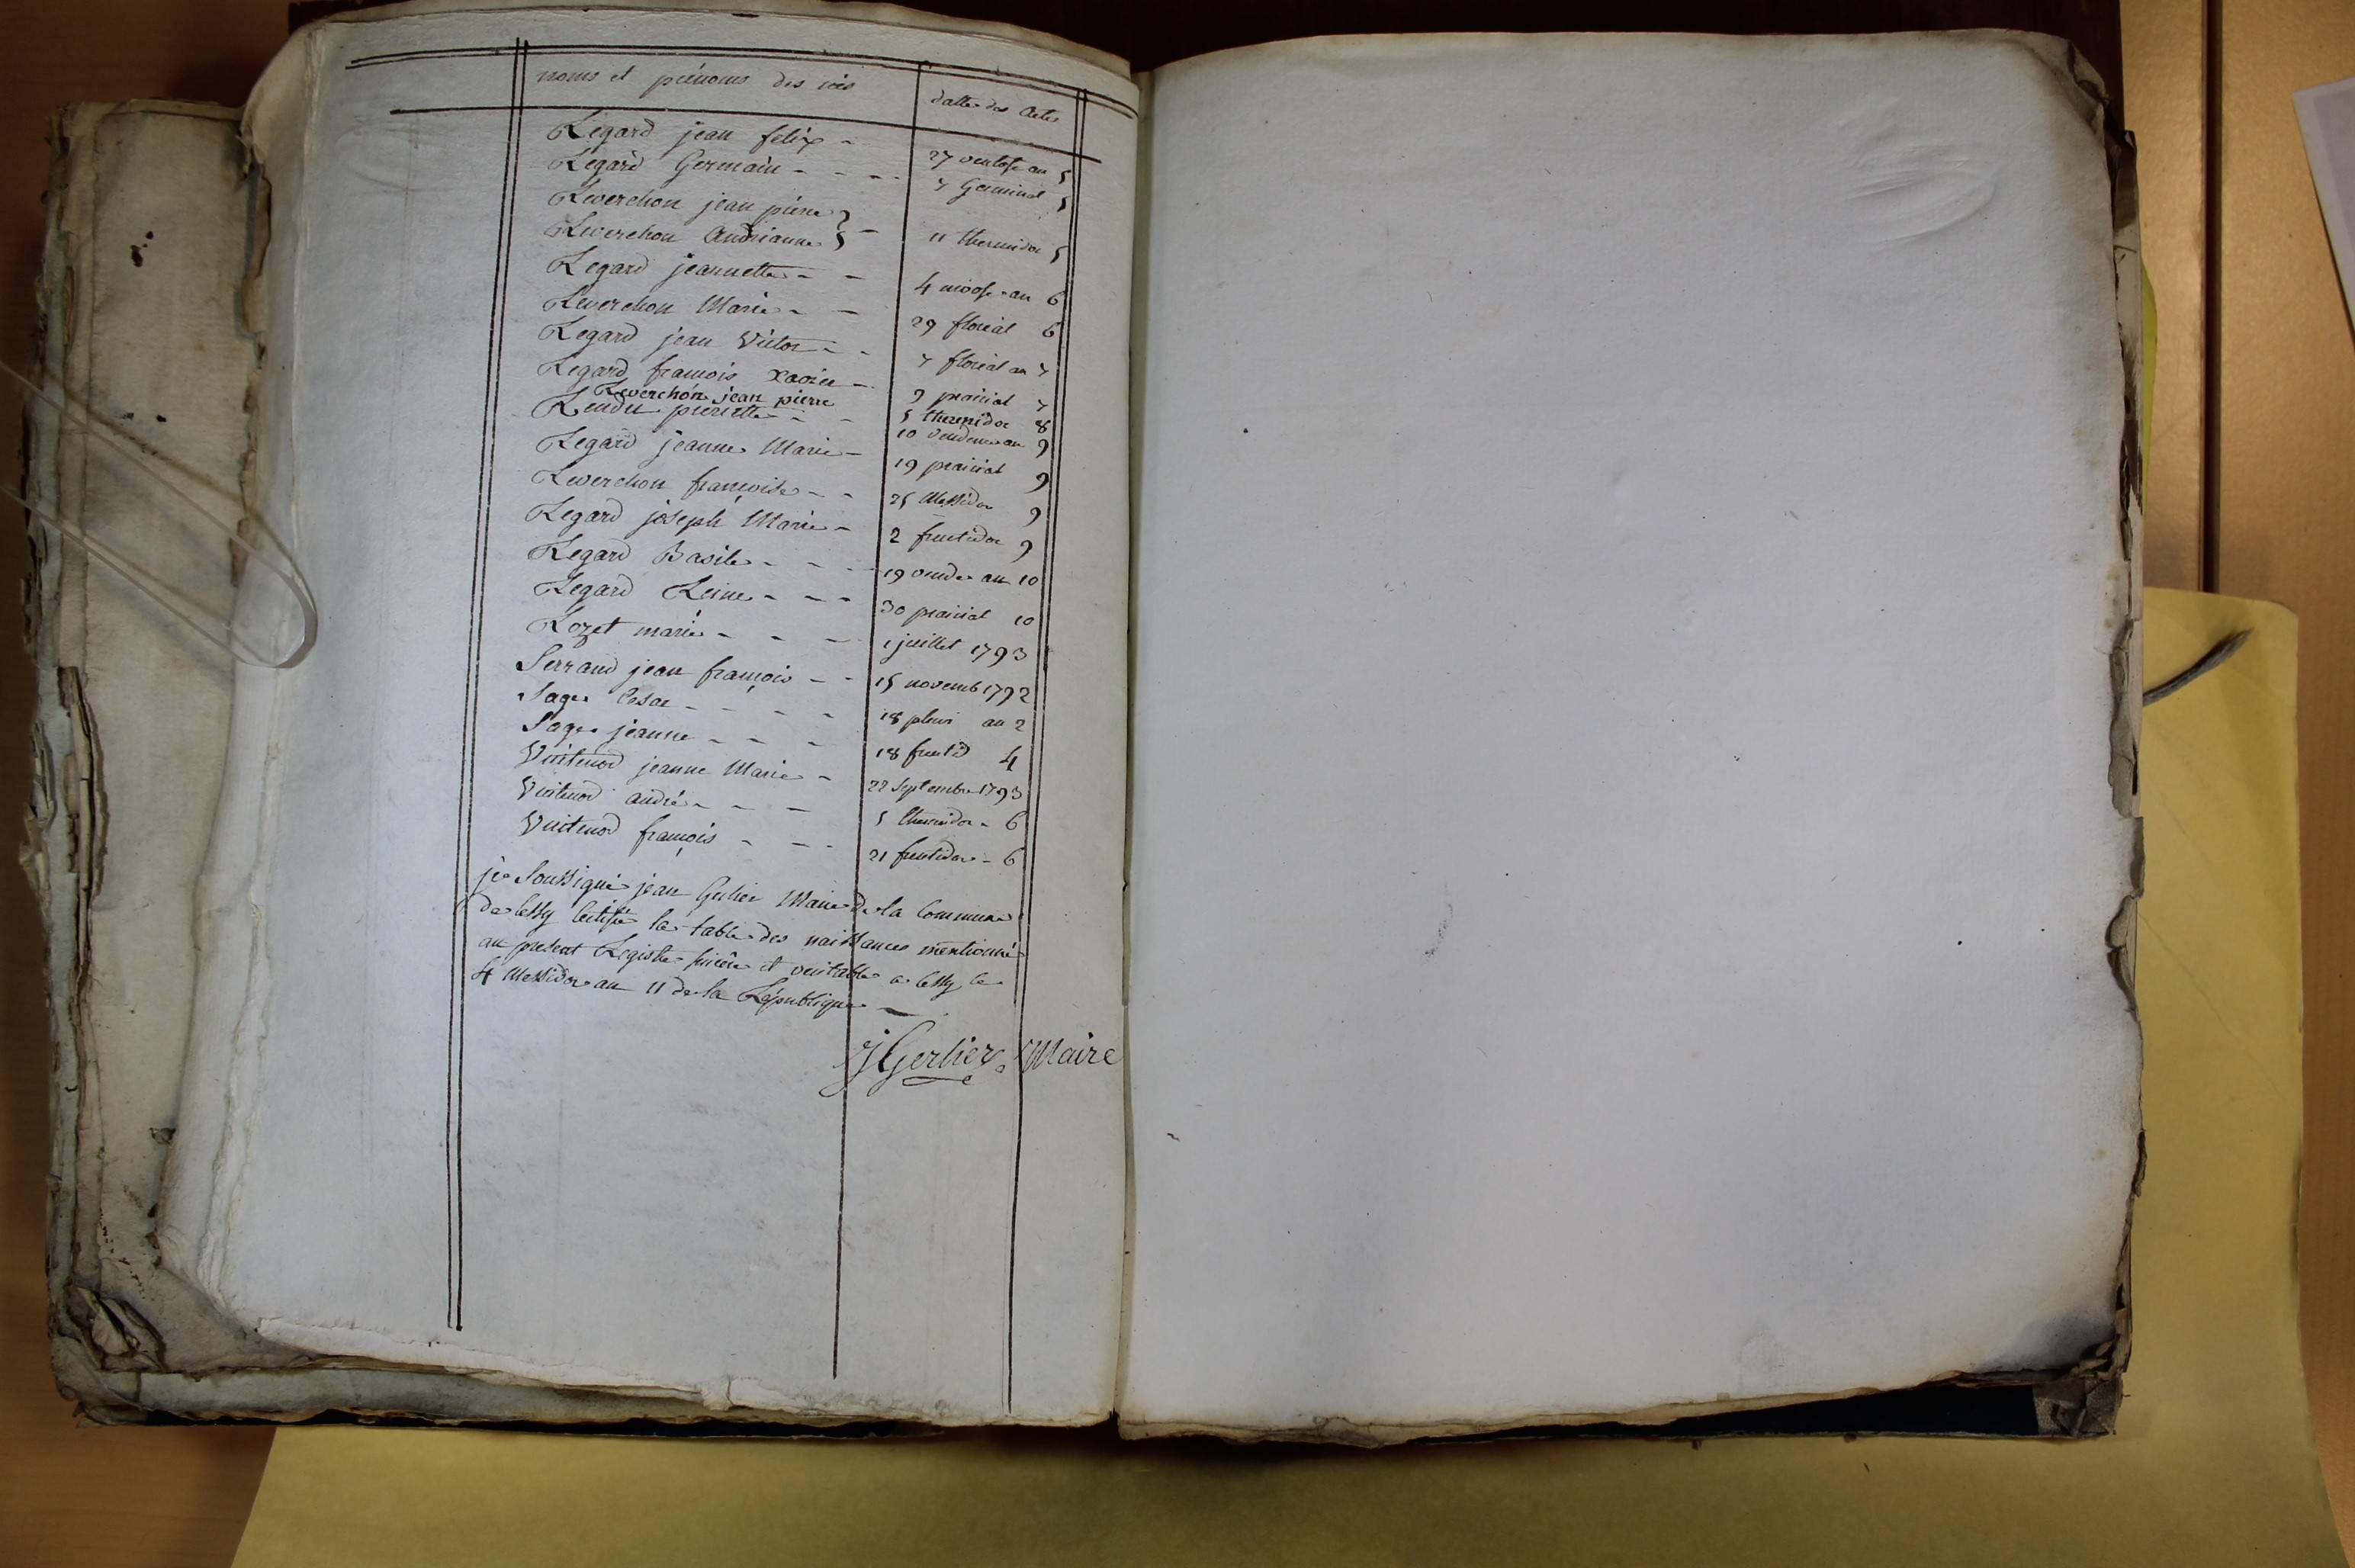 noms et prénoms des nés dattes des Actes
Regard jean felix - 27 ventose an 5
Regard Germain - - - - 7 Germinal 5
Reverchon jean pierre }
Reverchon Andrianne } - 11 thermidor 5
Regard jeannette - - 4 nivose an 6
Reverchon Marie - - 29 floreal 6
Regard jean Victor - - 7 floreal an 7
Regard françois Xavier - 9 prairial 7
Reverchon jean pierre 5 thermidor 8
Rendu pierrette - - 10 vendem an 9
Regard jeanne Marie - 19 prairial 9
Reverchon françoise - - 25 Messidor 9
Regard joseph Marie - 2 fructidor 9
Regard Basile - - - - 19 vende an 10
Regard Reine - - - 30 prairial 10
Rozet marie - - - 1 juillet 1793
Serrand jean françois - - 15 novemb 1792
Sage Cesar - - - - 18 pluvi an 2
Sage jeanne - - - 18 fructid 4
Vuitenod jeanne Marie - 22 Septembre 1793
Vuitenod andré - - - 5 thermidor - 6
Vuitenod françois - - - 21 fructidor - 6
je Soussigné jean Gerlier Maire de la Commune
de Cessy Certifie la table des naissances mentionné
au present Registre sincère et veritable a Cessy le
4 Messidor an 11 de la République -
jGerlier Maire